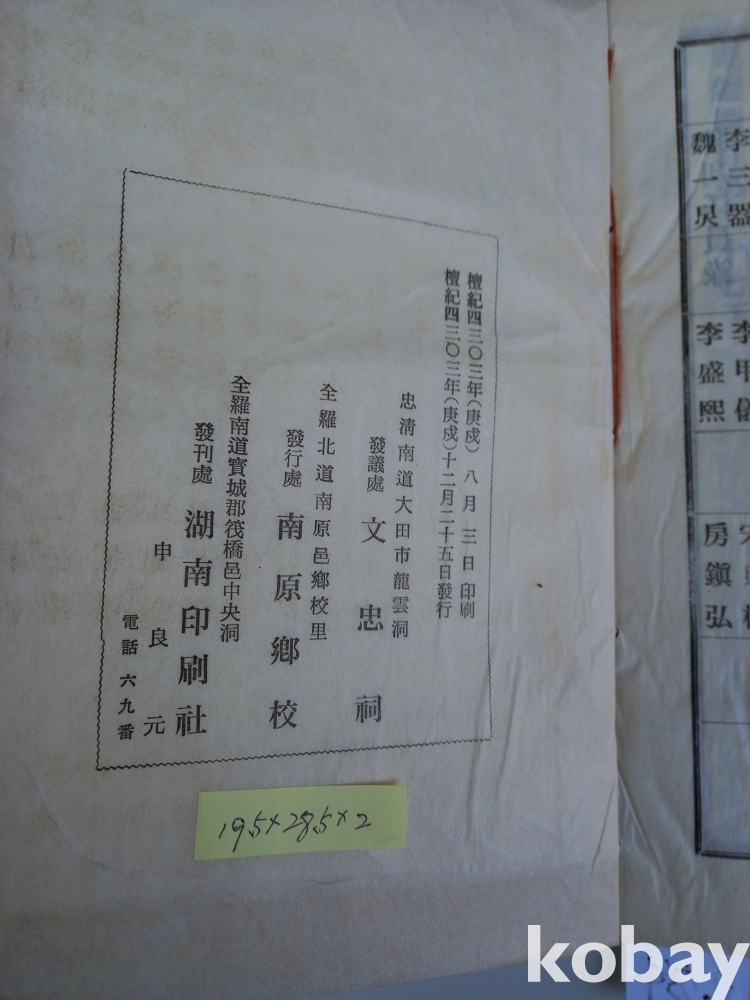 李三器
李甲儀
魏一炅
李盛熙
房鎭弘
檀紀四三〇三年(庚戍) 八月三日印刷
檀紀四三〇三年(庚戍)十二月二十五日發行
忠淸南道大田市龍雲洞
發議處 文忠祠
全羅北道南原邑鄕校里
發行處 南原鄕校
全羅南道寶城郡筏橋邑中央洞
發刊處 湖南印刷社
申良元
電話 六九番
19.5×28.5×2
kobay